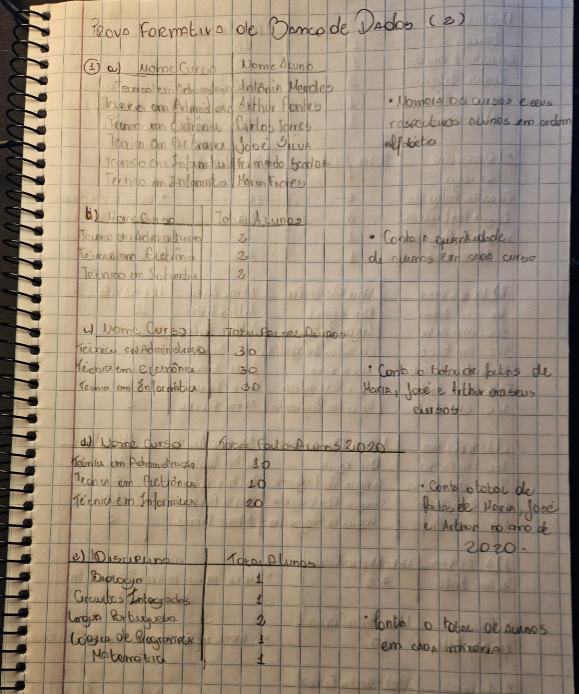 Prova Formativa de Banco de Dados (2)
1 a) Nome Curso | Nome Aluno
Técnico em Administração | Antônia Mendes
Técnico em Administração | Arthur Fontes
Técnico em Eletrônica | Carlos Torres
Técnico em Eletrônica | José Silva
Técnico em Informática | Santos
Técnico em Informática | Maria
• Nomeia os cursos e seus
respectivos alunos em ordem
alfabética
b) Nome Curso | Total Alunos
Técnico em Administração | 2
Técnico em Eletrônica | 2
Técnico em Informática | 2
• Conta a quantidade
de alunos em cada curso
c) Nome Curso | Total Faltas Alunos
Técnico em Administração | 30
Técnico em Eletrônica | 30
Técnico em Informática | 30
• Conta o total de faltas de
Maria, José e Arthur em seus
cursos
d) Nome Curso | Total Faltas Alunos 2020
Técnico em Administração | 10
Técnico em Eletrônica | 10
Técnico em Informática | 20
• Conta o total de
faltas de Maria, José
e Arthur no ano de
2020.
e) Disciplina | Total Alunos
Biologia | 1
Circuitos Integrados | 1
Língua Portuguesa | 2
Lógica de Programação | 1
Matemática | 1
• Conta o total de alunos
em cada matéria